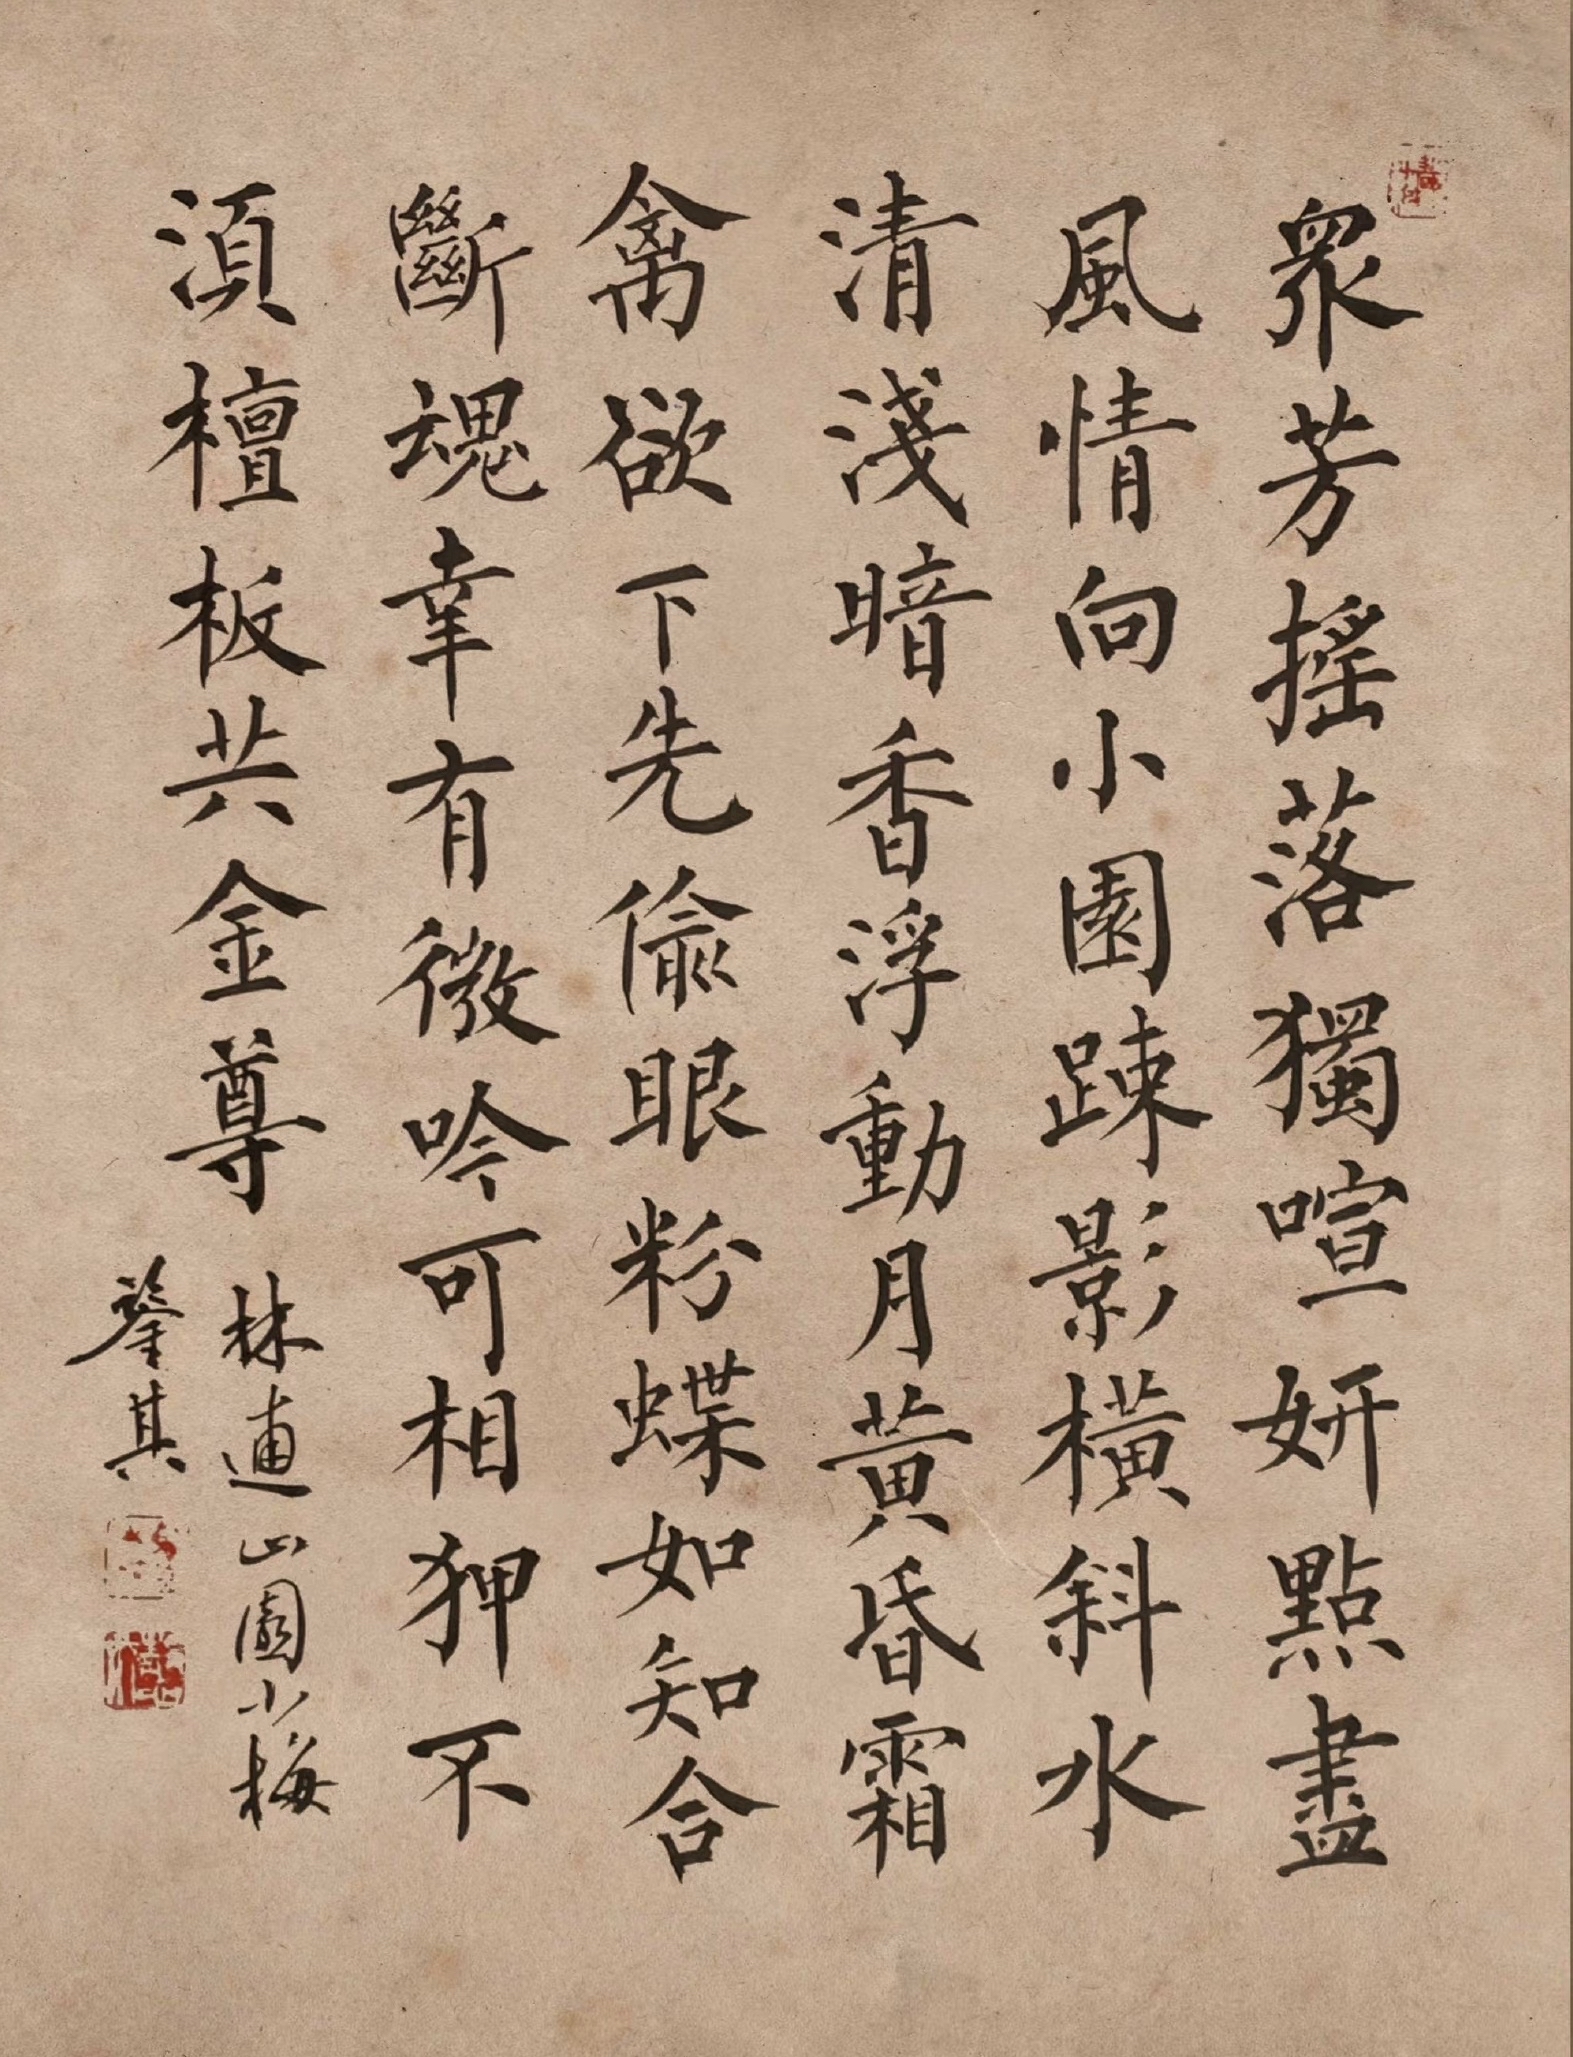 眾芳搖落獨喧妍點盡
風情向小園踈影橫斜水
清淺暗香浮動月黃昏霜
禽欲下先偷眼粉蝶如知合
斷魂幸有微吟可相狎不
須檀板共金尊
林逋山園小梅
其